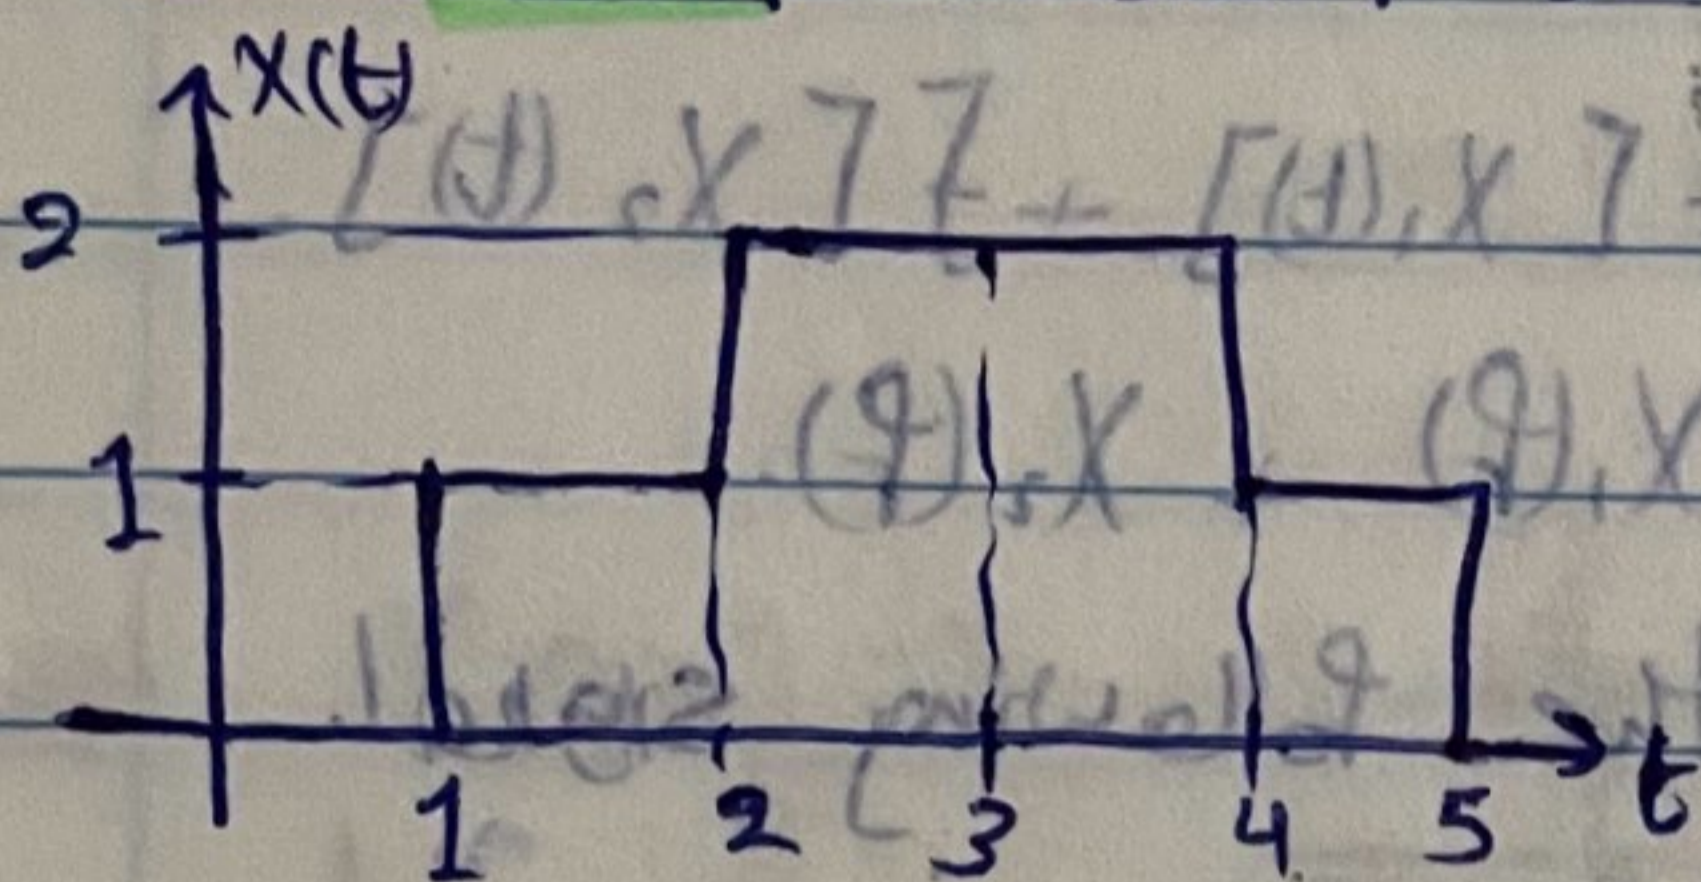 X(t)
2
1
1 2 3 4 5 t